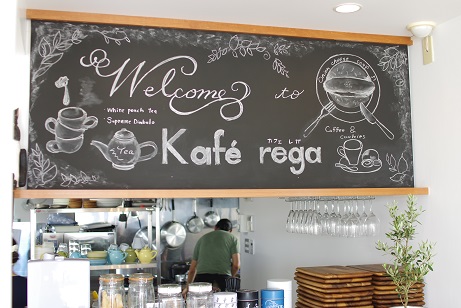 Welcome to
・White peach tea
・Supreme Diabolo
Tea
Kafé rega
カフェ レガ
Coffee &
cookies